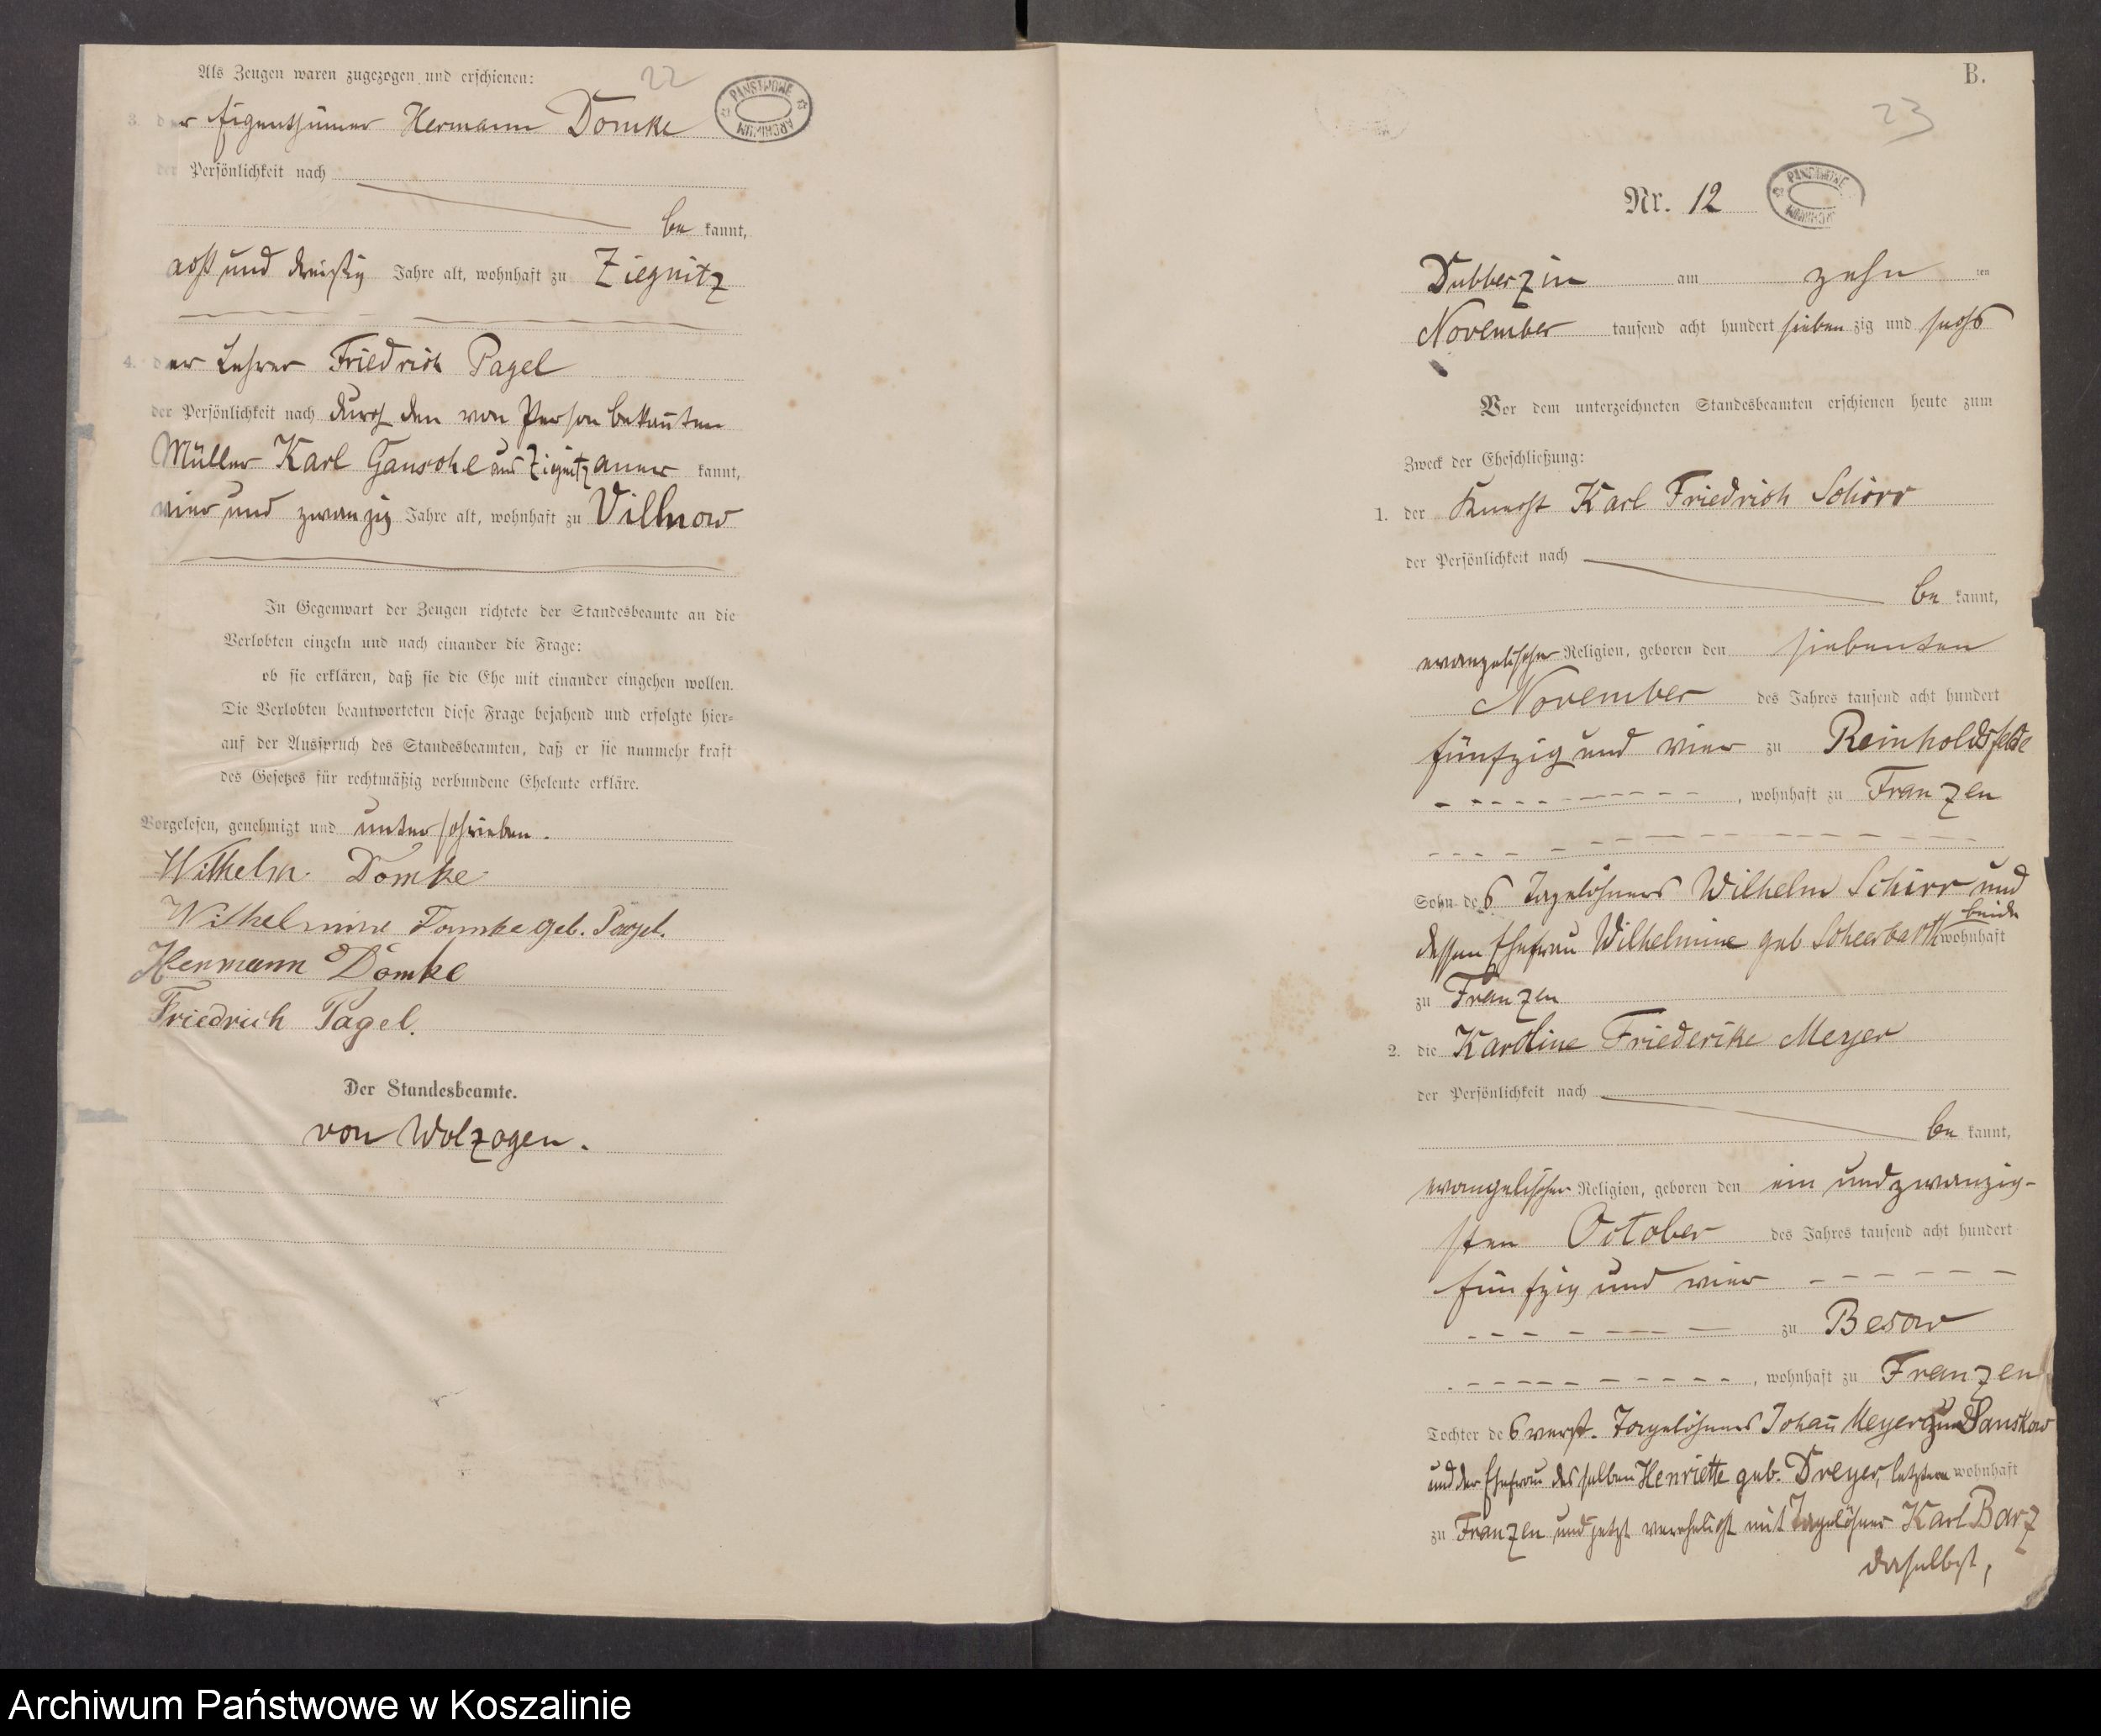 22
Als Zeugen waren zugezogen und erschienen:
PAŃSTWOWE ARCHIWUM
3. der Eigenthümer Hermann Domke
der Persönlichkeit nach
be kannt,
acht und dreißig Jahre alt, wohnhaft zu Ziegnitz
4. der Lehrer Friedrich Pagel
der Persönlichkeit nach durch den von Person bekañten
Müller Karl Gauschel aus Ziegnitz aner kannt,
vier und zwanzig Jahre alt, wohnhaft zu Villnow
In Gegenwart der Zeugen richtete der Standesbeamte an die
Verlobten einzeln und nach einander die Frage:
ob sie erklären, daß sie die Ehe mit einander eingehen wollen.
Die Verlobten beantworteten diese Frage bejahend und erfolgte hier-
auf der Ausspruch des Standesbeamten, daß er sie nunmehr kraft
des Gesetzes für rechtmäßig verbundene Eheleute erkläre.
Vorgelesen, genehmigt und unterschrieben.
Wilhelm Domke
Wilhelmine Domke geb. Pagel.
Hermann Domke
Friedrich Pagel.
Der Standesbeamte.
von Wolzogen.
B.
23
Nr. 12
PAŃSTWOWE ARCHIWUM
Dubberzin am zehn ten
November tausend acht hundert sieben zig und sechs
Vor dem unterzeichneten Standesbeamten erschienen heute zum
Zweck der Eheschließung:
1. der Knecht Karl Friedrich Schirr
der Persönlichkeit nach
be kannt,
evangelischer Religion, geboren den siebenten
November des Jahres tausend acht hundert
fünfzig und vier zu Reinholdsfelde
, wohnhaft zu Franzen
Sohn des Tagelöhners Wilhelm Schirr und
dessen Ehefrau Wilhelmine geb Scheerbarth beide wohnhaft
zu Franzen
2. die Karoline Friederike Meyer
der Persönlichkeit nach
be kannt,
evangelischer Religion, geboren den ein und zwanzig-
sten October des Jahres tausend acht hundert
fünfzig und vier
zu Besow
, wohnhaft zu Franzen
Tochter des verst. Tagelöhners Johañ Meyer zu Danskow
und der Ehefrau desselben Henriette geb. Dreyer, letztere wohnhaft
zu Franzen und jetzt verehelicht mit Tagelöhner Karl Barz
daselbst,
Archiwum Państwowe w Koszalinie